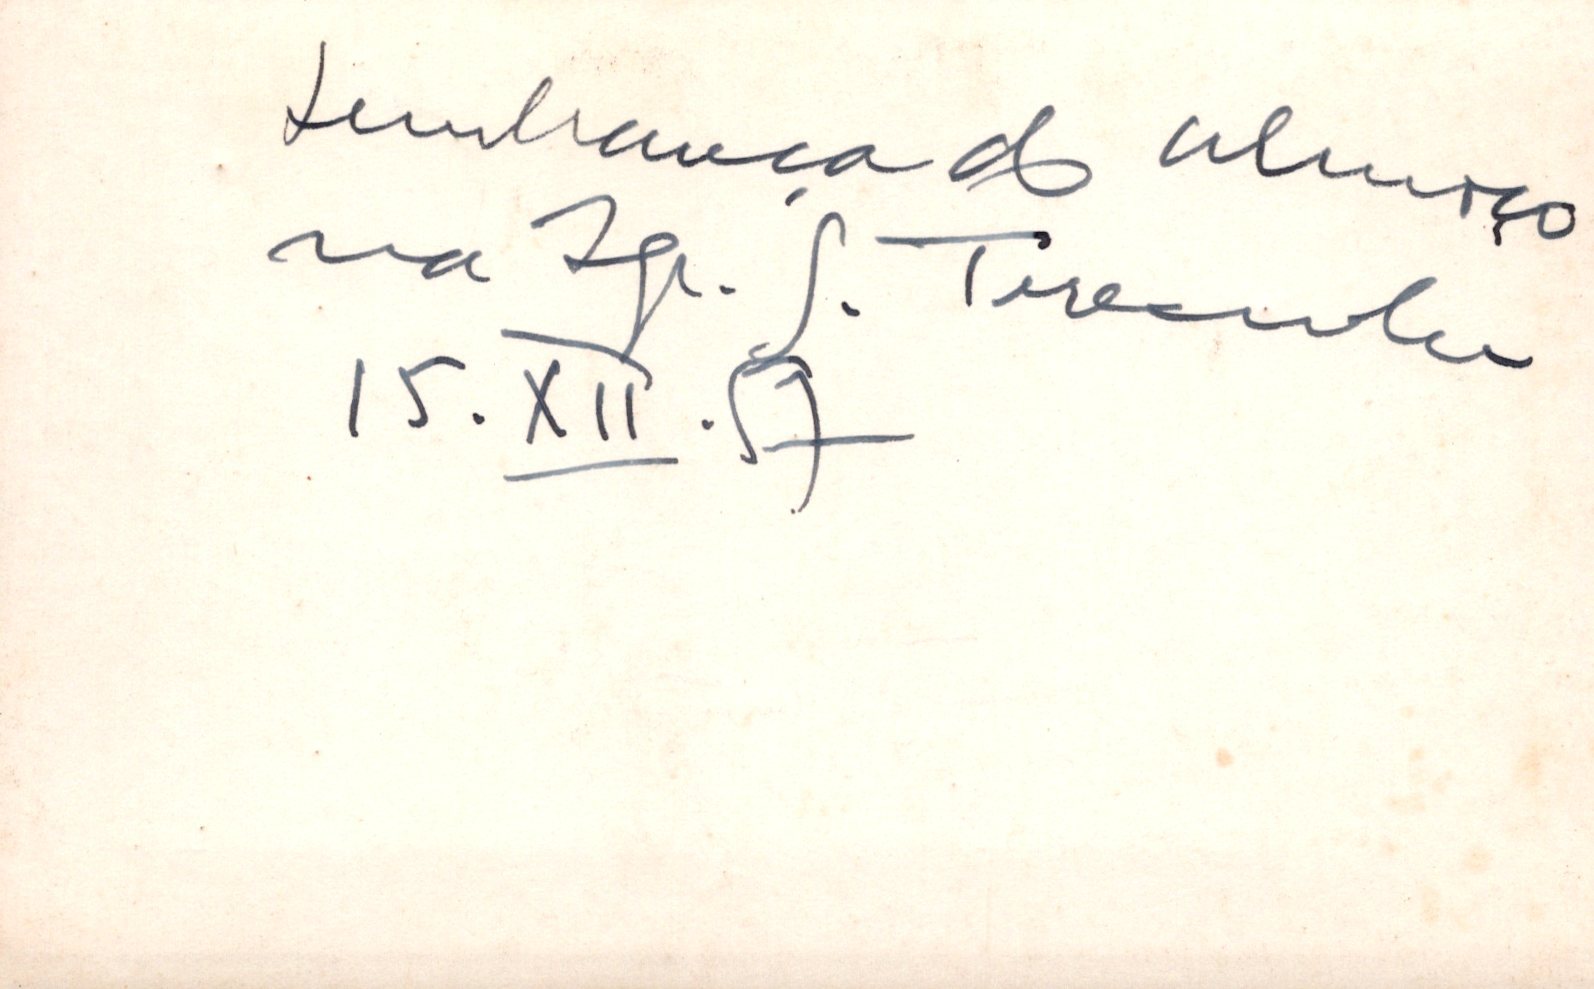 Lembrança do almoço
na Igr. S. Teresinha
15.XII.57